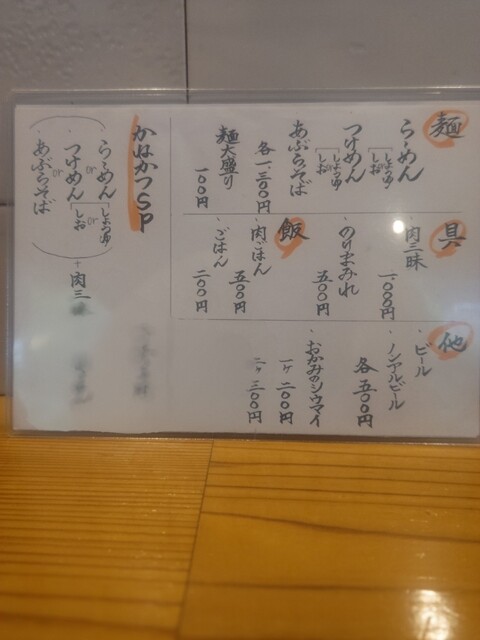 麺
らーめん
しょうゆ
しお
つけめん
しょうゆ
しお
あぶらそば
各一、三〇〇円
麺大盛り
一〇〇円
具
・肉三昧
一、〇〇〇円
・のりまみれ
五〇〇円
飯
・肉ごはん
五〇〇円
・ごはん
二〇〇円
他
・ビール
・ノンアルビール
各五〇〇円
・おかみのシウマイ
一ヶ二〇〇円
二ヶ三〇〇円
かねかつSP
・らーめん
or
・つけめん
しょうゆ
or
しお
or
・あぶらそば
+
肉三昧